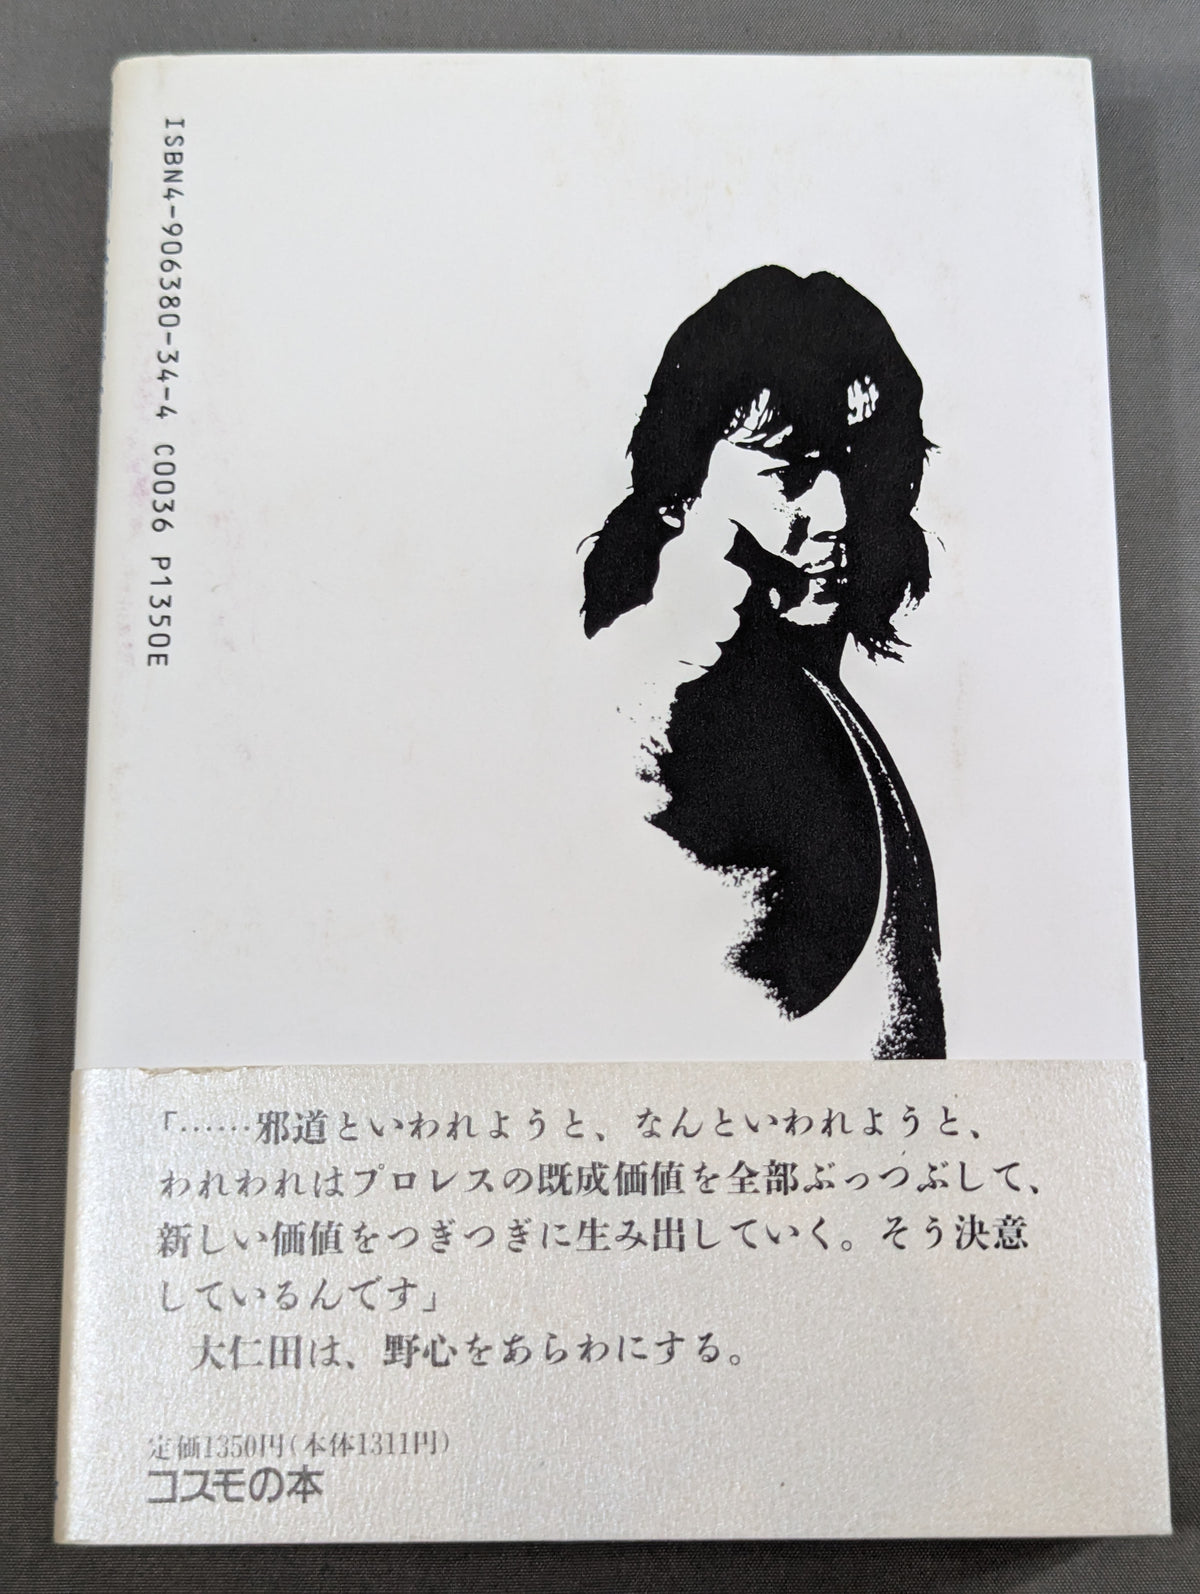 ISBN4-906380-34-4 C0036 P1350E
「……邪道といわれようと、なんといわれようと、
われわれはプロレスの既成価値を全部ぶっつぶして、
新しい価値をつぎつぎに生み出していく。そう決意
しているんです」
大仁田は、野心をあらわにする。
定価1350円(本体1311円)
コスモの本